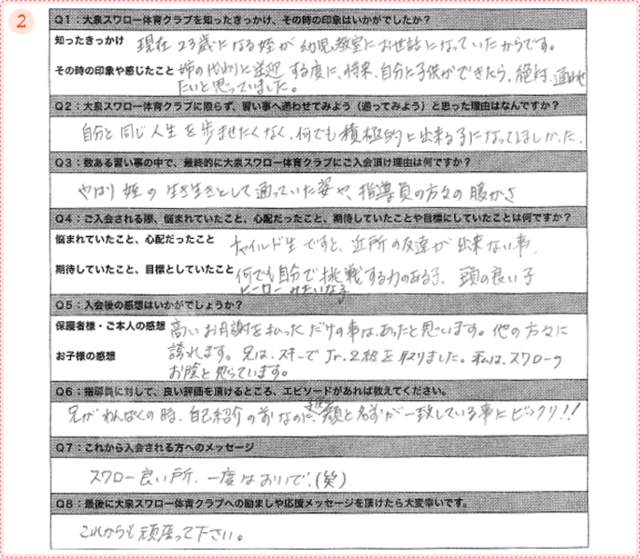 2
Q1:大泉スワロー体育クラブを知ったきっかけ、その時の印象はいかがでしたか?
知ったきっかけ 現在23歳になる姪が幼児教室にお世話になっていたからです。
その時の印象や感じたこと 姉の代わりに送迎する度に、将来、自分に子供ができたら、絶対、通わせ
たいと思っていました。
Q2:大泉スワロー体育クラブに限らず、習い事へ通わせてみよう(通ってみよう)と思った理由はなんですか?
自分と同じ人生を歩ませたくなく、何でも積極的に出来る子になってほしかった。
Q3:数ある習い事の中で、最終的に大泉スワロー体育クラブにご入会頂け理由は何ですか?
やはり姪の生き生きとして通っていた姿や、指導員の方々の暖かさ
Q4:ご入会される際、悩まれていたこと、心配だったこと、期待していたことや目標にしていたことは何ですか?
悩まれていたこと、心配だったこと チャイルド生ですと、近所の友達が出来ない事、
期待していたこと、目標としていたこと 何でも自分で挑戦する力のある子、頭の良い子
ヒーローみたいな子
Q5:入会後の感想はいかがでしょうか?
保護者様・ご本人の感想 高いお月謝を払っただけの事はあったと思います。他の方々に
誇れます。兄は、スキーでJr.2級を取りました。私は、スワローの
お子様の感想
お陰と思っています。
Q6:指導員に対して、良い評価を頂けるところ、エピソードがあれば教えてください。
兄がわんぱくの時、自己紹介の前なのに、顔と名前が一致している事にビックリ!!
Q7:これから入会される方へのメッセージ
スワロー良い所、一度はおいで、(笑)
Q8:最後に大泉スワロー体育クラブへの励ましや応援メッセージを頂けたら大変幸いです。
これからも頑張って下さい。